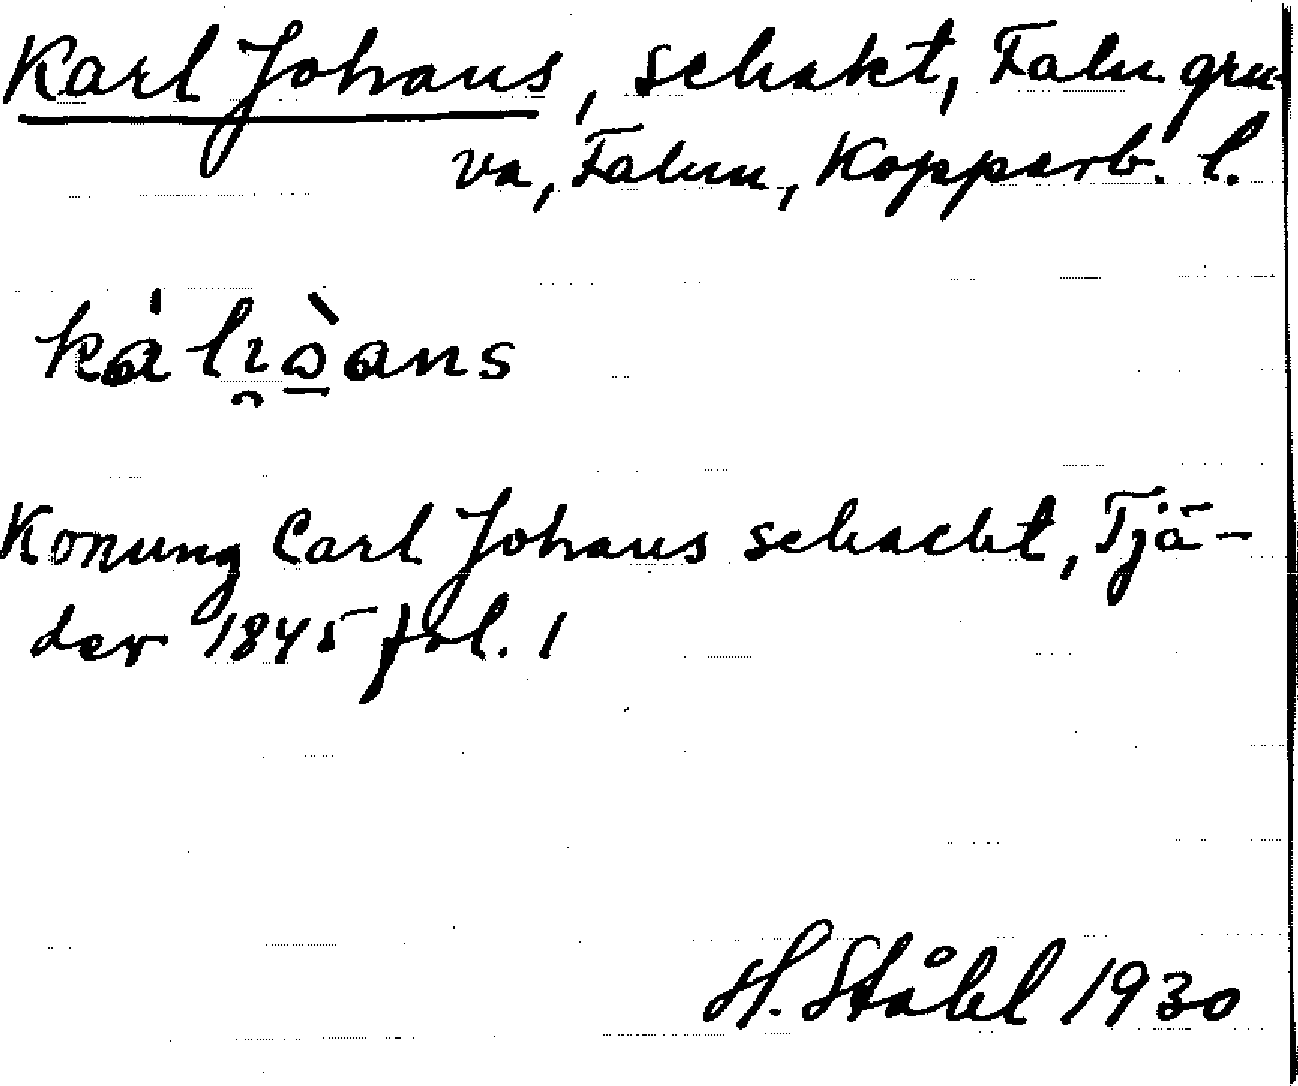 Karl Johans, schakt, Falu gru-
va, Falun, Kopparb. l.
Konung Carl Johans schacht, Tjä-
der 1845 fol. 1
H. Ståhl 1930